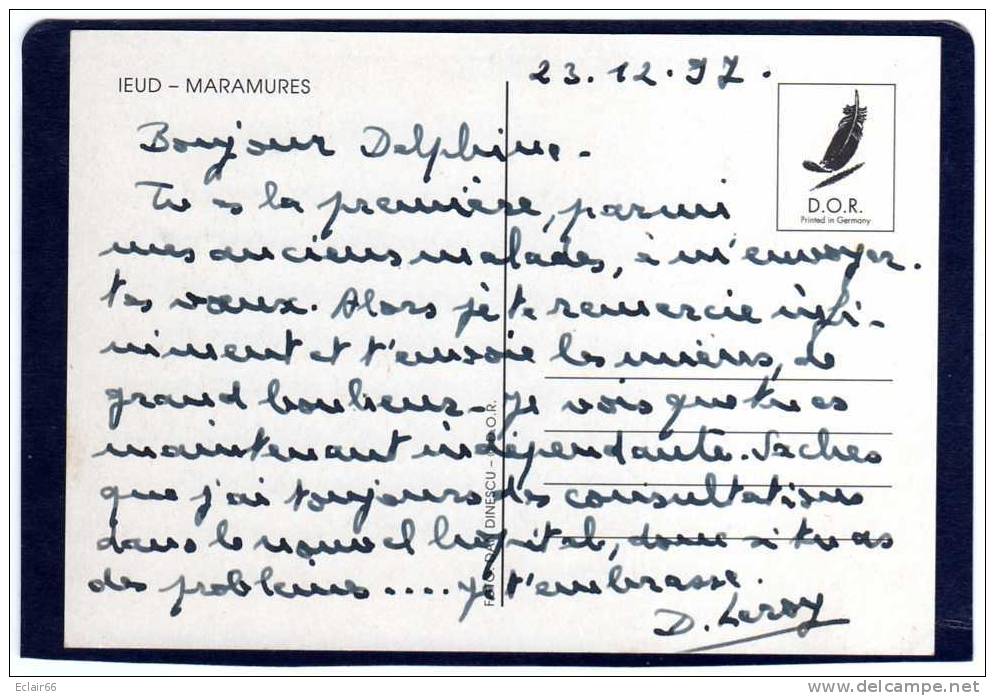 IEUD – MARAMURES
23.12.97.
D.O.R.
Printed in Germany
Bonjour Delphine.
Tu es la première, parmi
mes anciens malades, à m'envoyer
tes vœux. Alors je te remercie infi-
niment et t'envoie les miens, de
grand bonheur. Je vois que tu es
maintenant indépendante. Saches
que j'ai toujours des consultations
dans le nouvel hôpital, donc si tu as
des problèmes.... Je t'embrasse.
D. Leroy
DINESCU – D.O.R.
Eclair66
www.delcampe.net